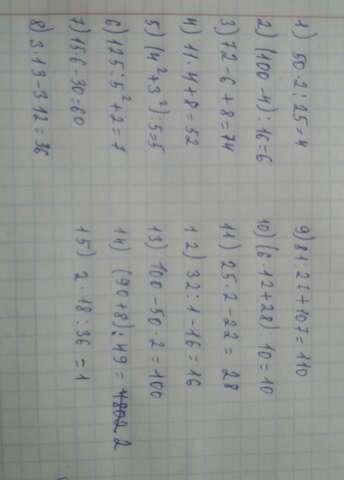 1) 50·2:25=4
2) (100-4):16=6
3) 72-6+8=74
4) 11·4+8=52
5) (4²+3²):5=5
6) 125:5²+2=7
7) 15·6-30=60
8) 3·13-3·12=36
9) 81:27+107=110
10) (6·12+28) 10=10
11) 25·2-22=28
12) 32:1-16=16
13) 100-50·2=100
14) (90+8):49= 2
15) 2·18:36=1